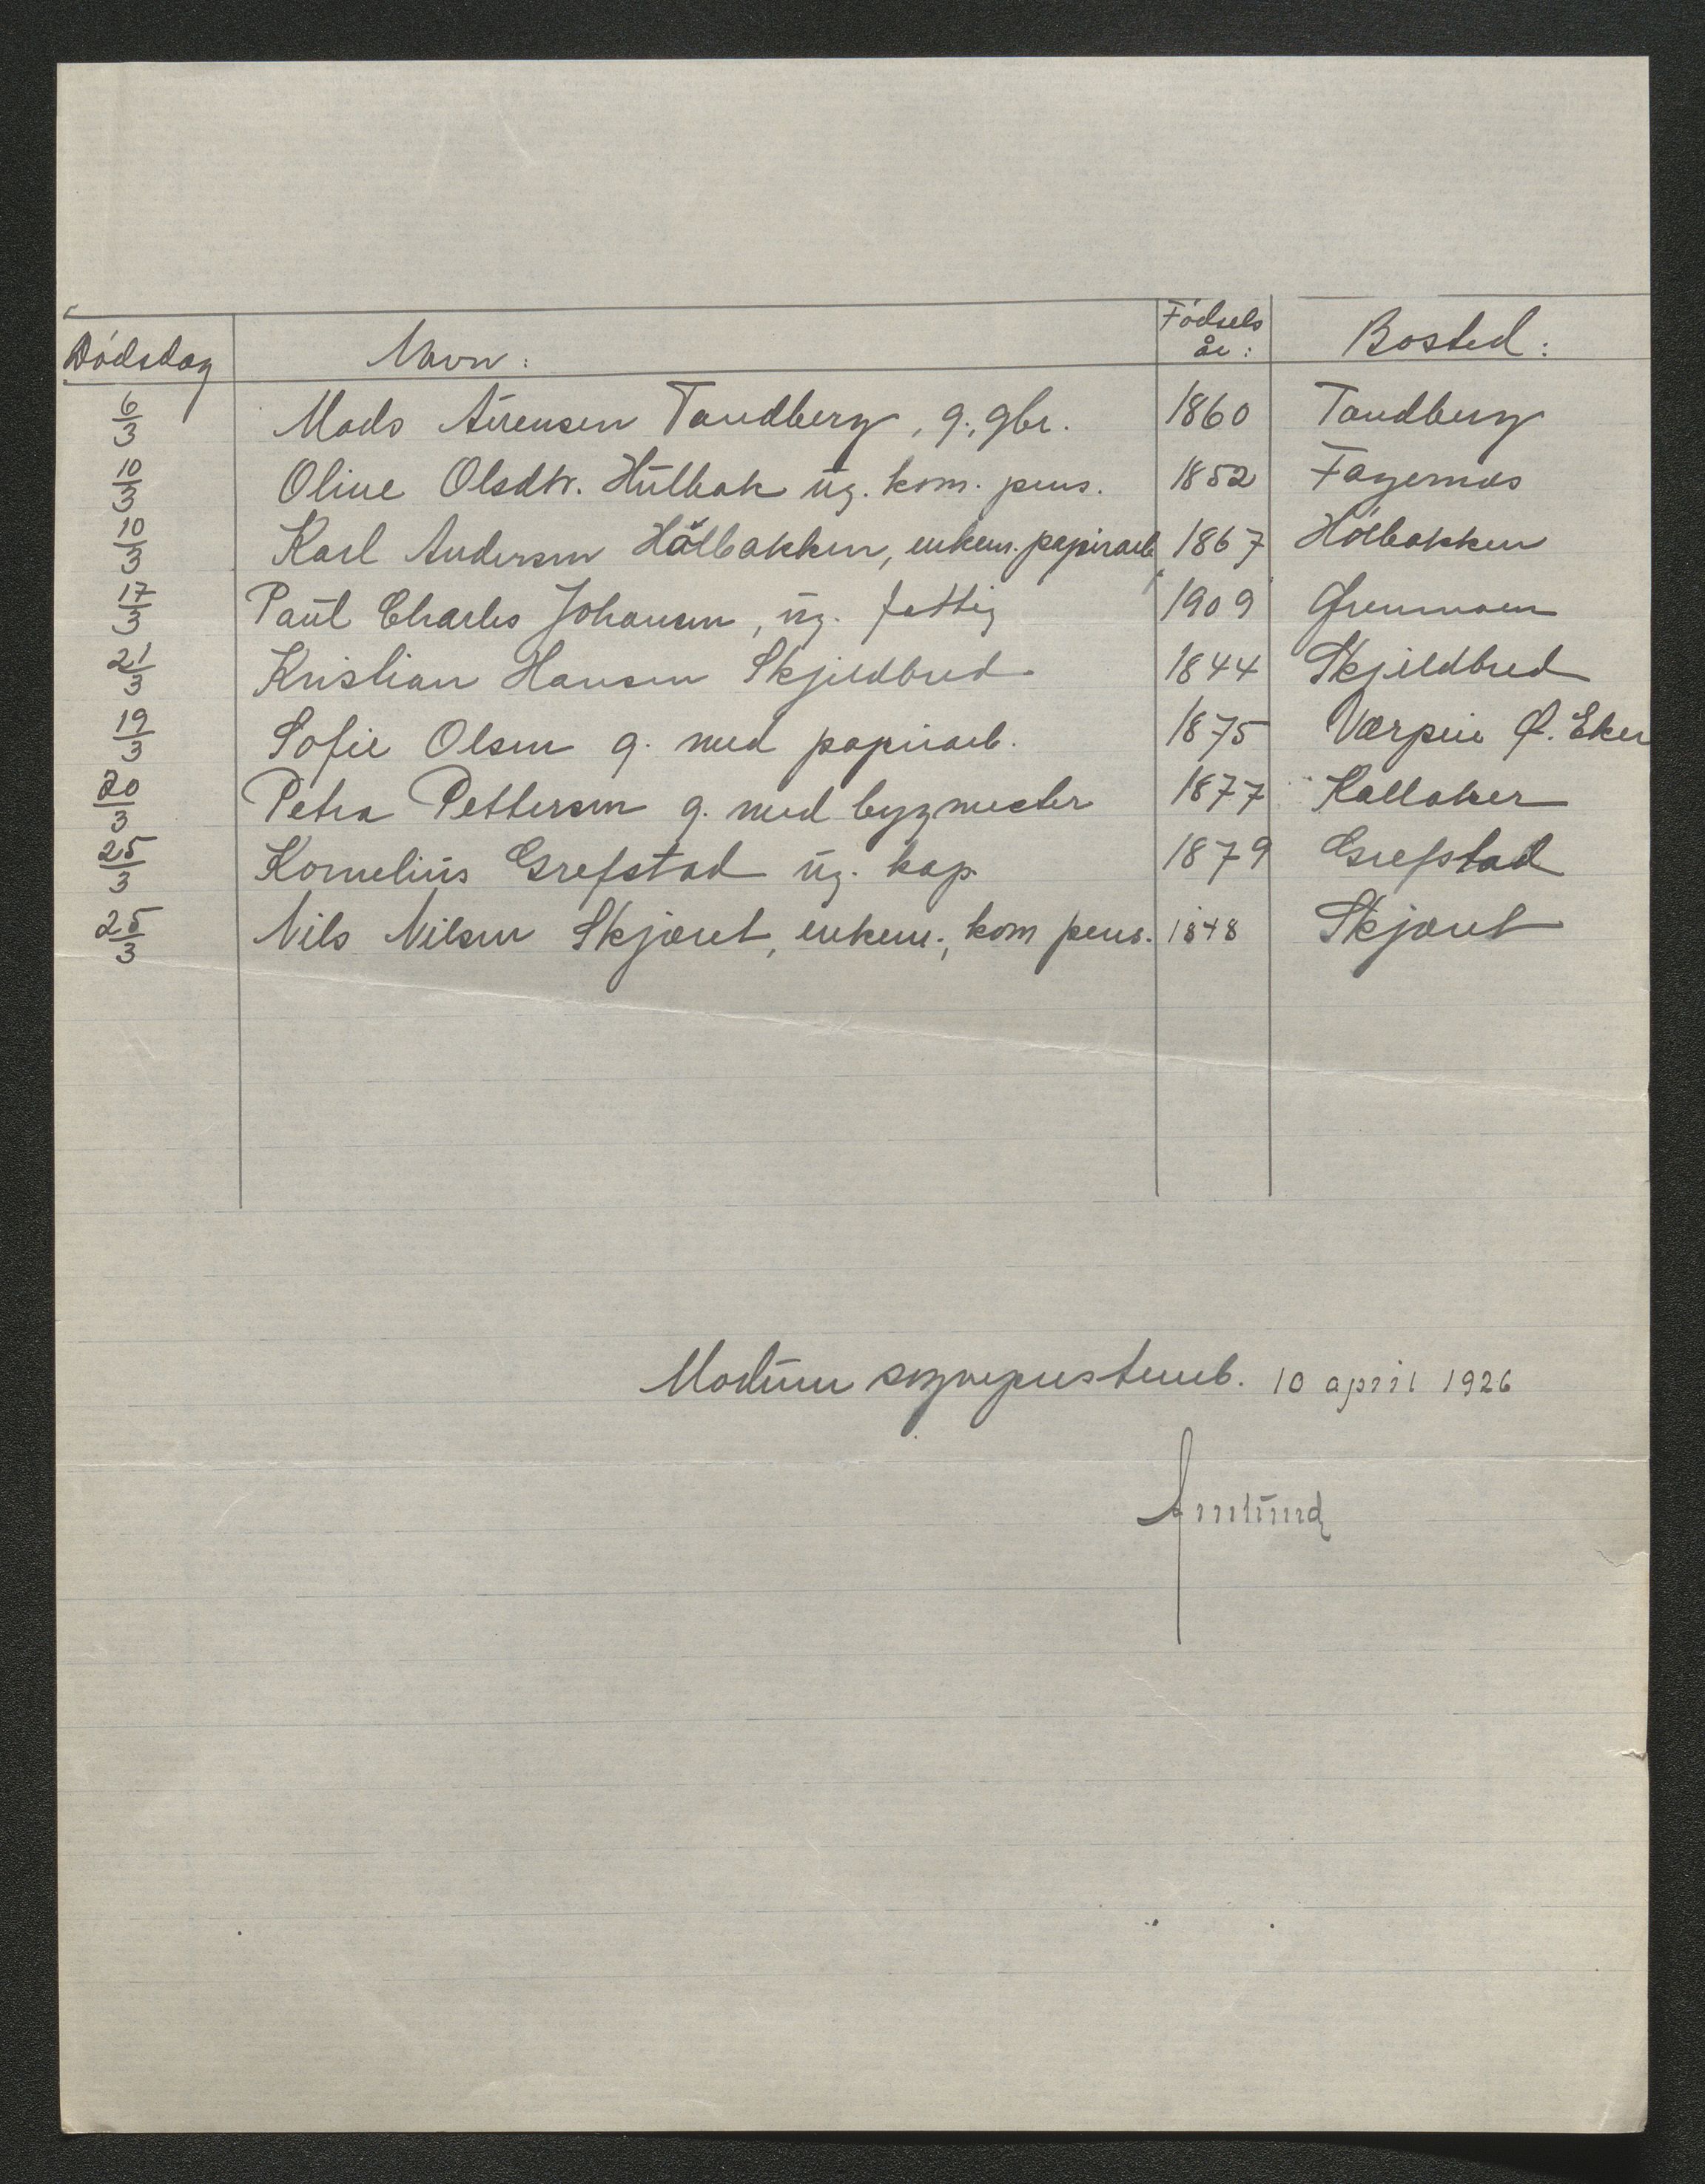 Dödsdag Navn: Födsels år: Bosted:
6/3 Mads Aürensen Tandberg, g., gbr. 1860 Tandberg
10/3 Oline Olsdtr. Hülbak üg. kom. pens. 1852 Fagernæs
10/3 Karl Andersen Hålbakken, enkem. papirarb. 1867 Hölbakken
17/3 Paül Charles Johansen, üg. fattig 1909 Grenmoen
21/3 Kristian Hansen Skjeldbred 1844 Skjeldbred
19/3 Sofie Olsen g. med papirarb. 1875 Værpen Ø. Eker
20/3 Petra Pettersen g. med bygmester 1877 Kalläker
25/3 Korneliüs Grefstad üg. kap. 1879 Grefstad
25/3 Nils Nilsen Skjæret, enkem., kom pens. 1848 Skjæret
Modüm sogneprestemb. 10 april 1926